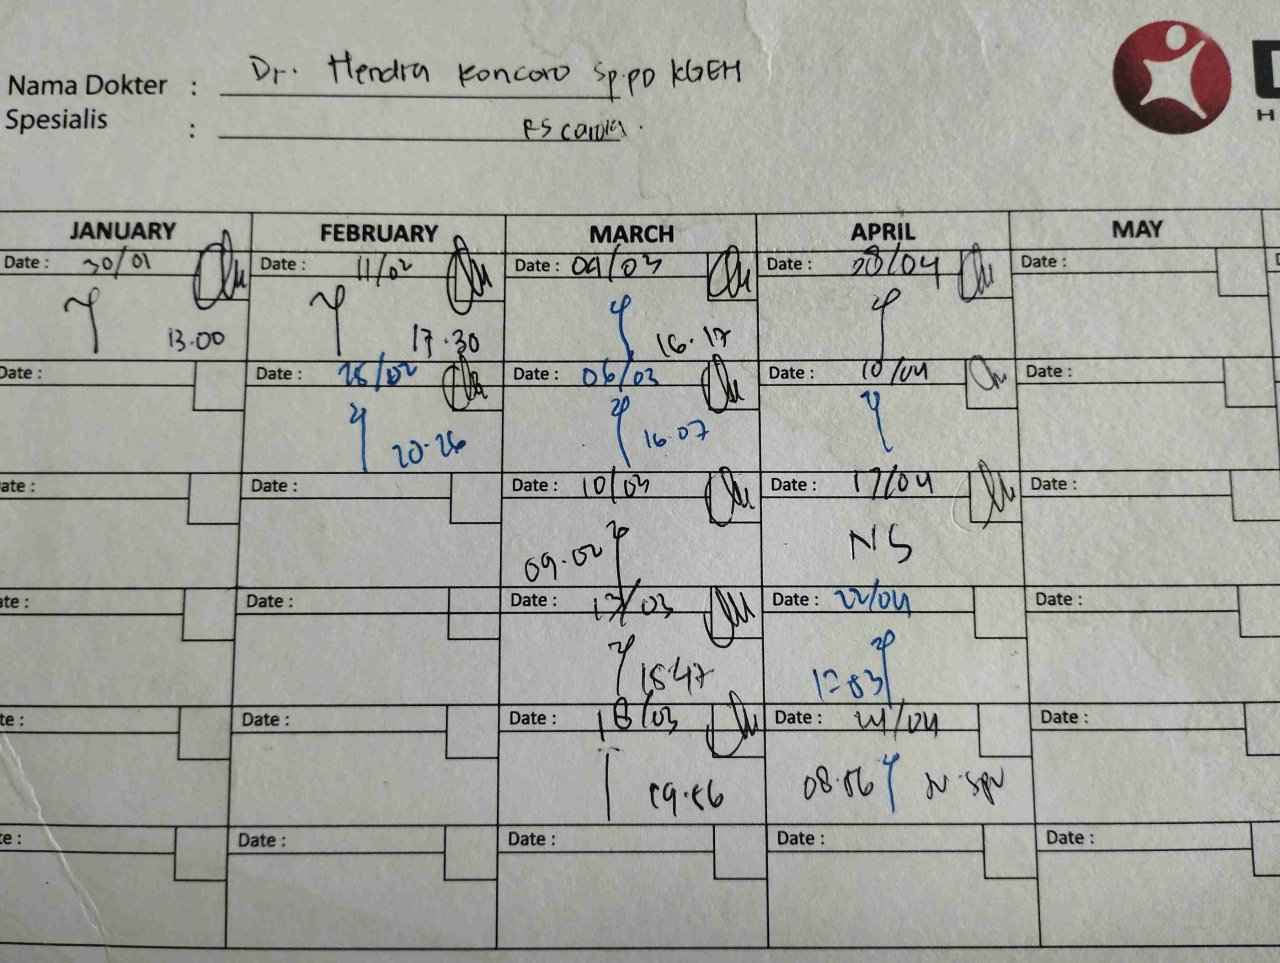 Nama Dokter : Dr. Hendra Koncoro Sp.PD KGEH
Spesialis : RS
JANUARY FEBRUARY MARCH APRIL MAY
Date : 30/01 Date : 11/02 Date : 04/03 Date : 08/04 Date :
13.00 17.30 16.17
Date : Date : 25/02 Date : 06/03 Date : 10/04 Date :
20.26 16.07
ate : Date : Date : 10/03 Date : 17/04 Date :
09.00 NS
te : Date : Date : 13/03 Date : 22/04 Date :
15.47
te : Date : Date : 18/03 Date : 24/04 Date :
19.56 08.56
te : Date : Date : Date : Date :